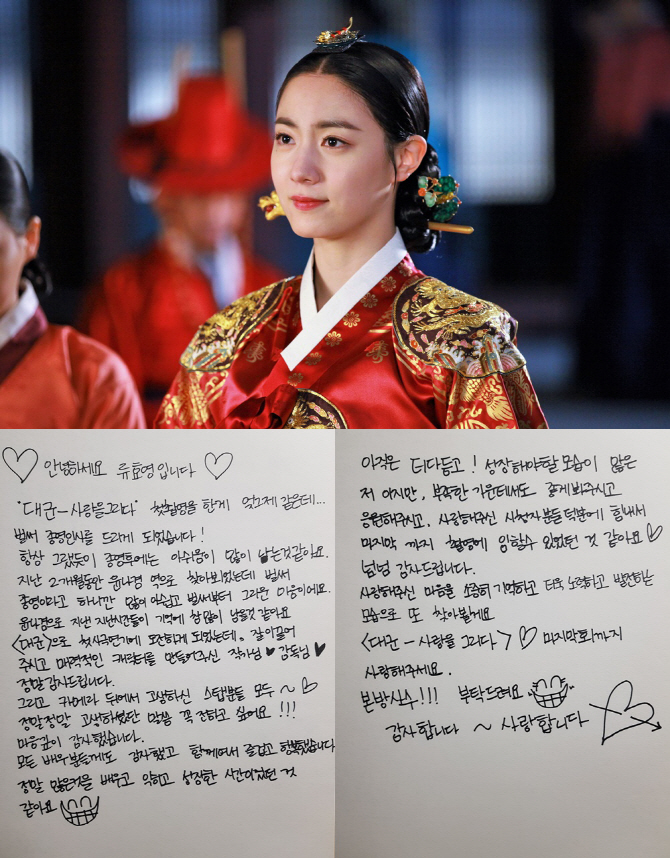 ♡ 안녕하세요 류효영입니다 ♡
"대군-사랑을그리다" 첫촬영을 한게 엊그제 같은데...
벌써 종영인사를 드리게 되었습니다!
항상 그랬듯이 종영후에는 아쉬움이 많이 남는것같아요.
지난 2개월동안 윤나겸 역으로 찾아뵈었는데 벌써
종영이라고 하니깐 많이 아쉽고 벌써부터 그리운 마음이에요.
윤나겸으로 지낸 지난시간들이 기억에 참 많이 남을것 같아요
<대군>으로 첫사극연기에 도전하게 되었는데. 잘 이끌어
주시고 매력적인 캐릭터를 만들어주신 작가님♥ 감독님♥
정말 감사드립니다.
그리고 카메라 뒤에서 고생하신 스탭분들 모두 ~ ♡
정말정말 고생하셨단 말씀 꼭 전하고 싶어요 !!!
마음깊이 감사했습니다.
모든 배우분들께도 감사했고 함께여서 즐겁고 행복했습니다
정말 많은것을 배우고 익히고 성장한 시간이었던 것
같아요
아직은 더다듬고! 성장해야할 모습이 많은
저 이지만, 부족한 가운데서도 좋게봐주시고
응원해주시고, 사랑해주신 시청자분들 덕분에 힘내서
마지막 까지 촬영에 임할수 있었던 것 같아요♡
넘넘 감사드립니다.
사랑해주신 마음을 소중히 기억하고 더욱 노력하고 발전하는
모습으로 또 찾아뵐게요
<대군-사랑을 그리다>♡ 마지막회까지
사랑해주세요.
본방사수!!! 부탁드려요
감사합니다 ~ 사랑합니다